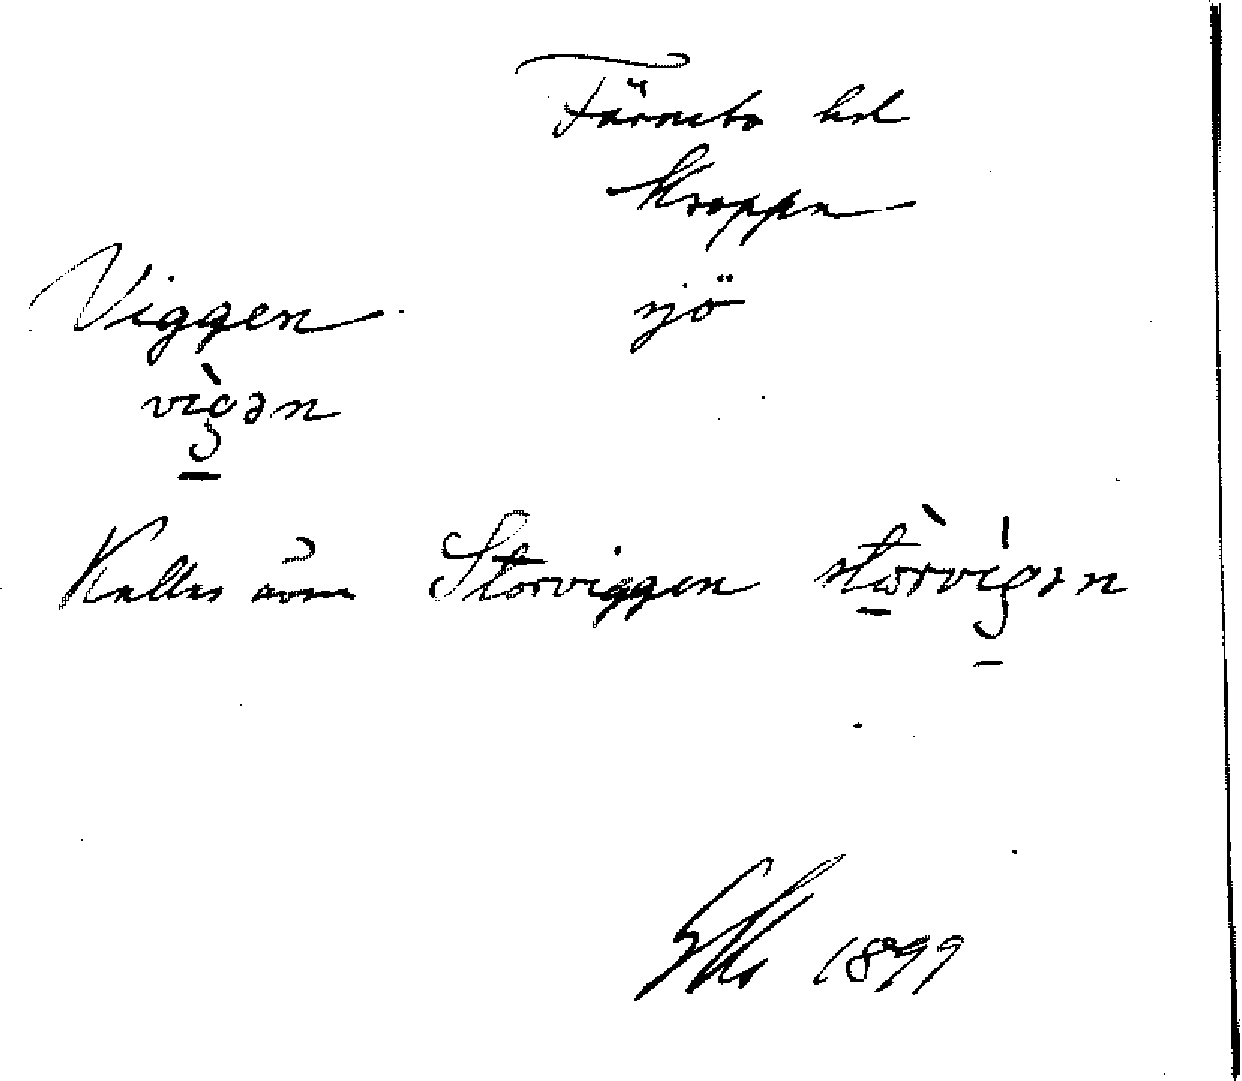 Färnebo hd
Kroppa
Viggen sjö
vìgən
Kallas även Storviggen stòrvígən
1899